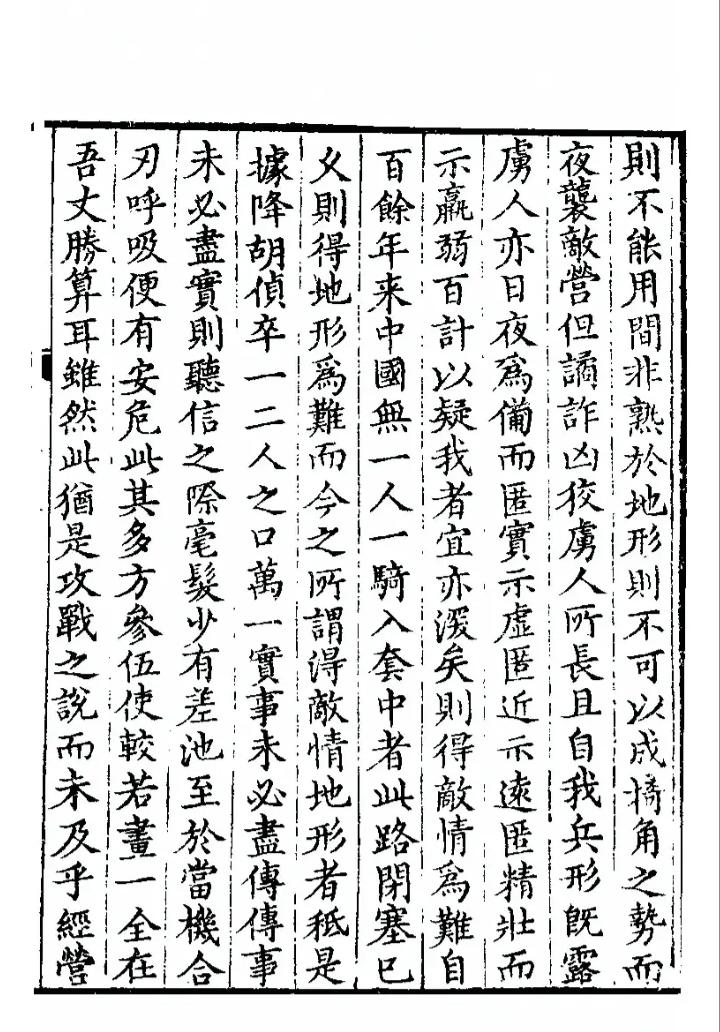 則不能用間非熟於地形則不可以成犄角之勢而
夜襲敵營但譎詐凶狡虜人所長且自我兵形既露
虜人亦日夜爲備而匿實示虛匿近示遠匿精壯而
示羸弱百計以疑我者宜亦深矣則得敵情爲難自
百餘年来中國無一人一騎入套中者此路閉塞已
久則得地形爲難而今之所謂得敵情地形者秪是
據降胡偵卒一二人之口萬一實事未必盡傳傳事
未必盡實則聽信之際毫髮少有差池至於當機合
刃呼吸便有安危此其多方參伍使較若畫一全在
吾丈勝算耳雖然此猶是攻戰之說而未及乎經營